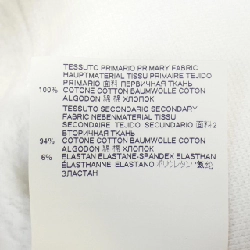 TESSUTO PRIMARIO PRIMARY FABRIC
HAUPTMATERIAL TISSU PRIMAIRE TEJIDO
PRIMARIO 面料 ПЕРВИЧНАЯ ТКАНЬ
100% COTONE COTTON BAUMWOLLE COTON
ALGODON 綿 棉 ХЛОПОК
TESSUTO SECONDARIO SECONDARY
FABRIC NEBENMATERIAL TISSU
SECONDAIRE TEJIDO SECUNDARIO 面料2
ВТОРИЧНАЯ ТКАНЬ
94% COTONE COTTON BAUMWOLLE COTON
ALGODON 綿 棉 ХЛОПОК
6% ELASTAN ELASTANE-SPANDEX ELASTHAN
ELASTHANNE ELASTANO ポリウレタン
ЭЛАСТАН